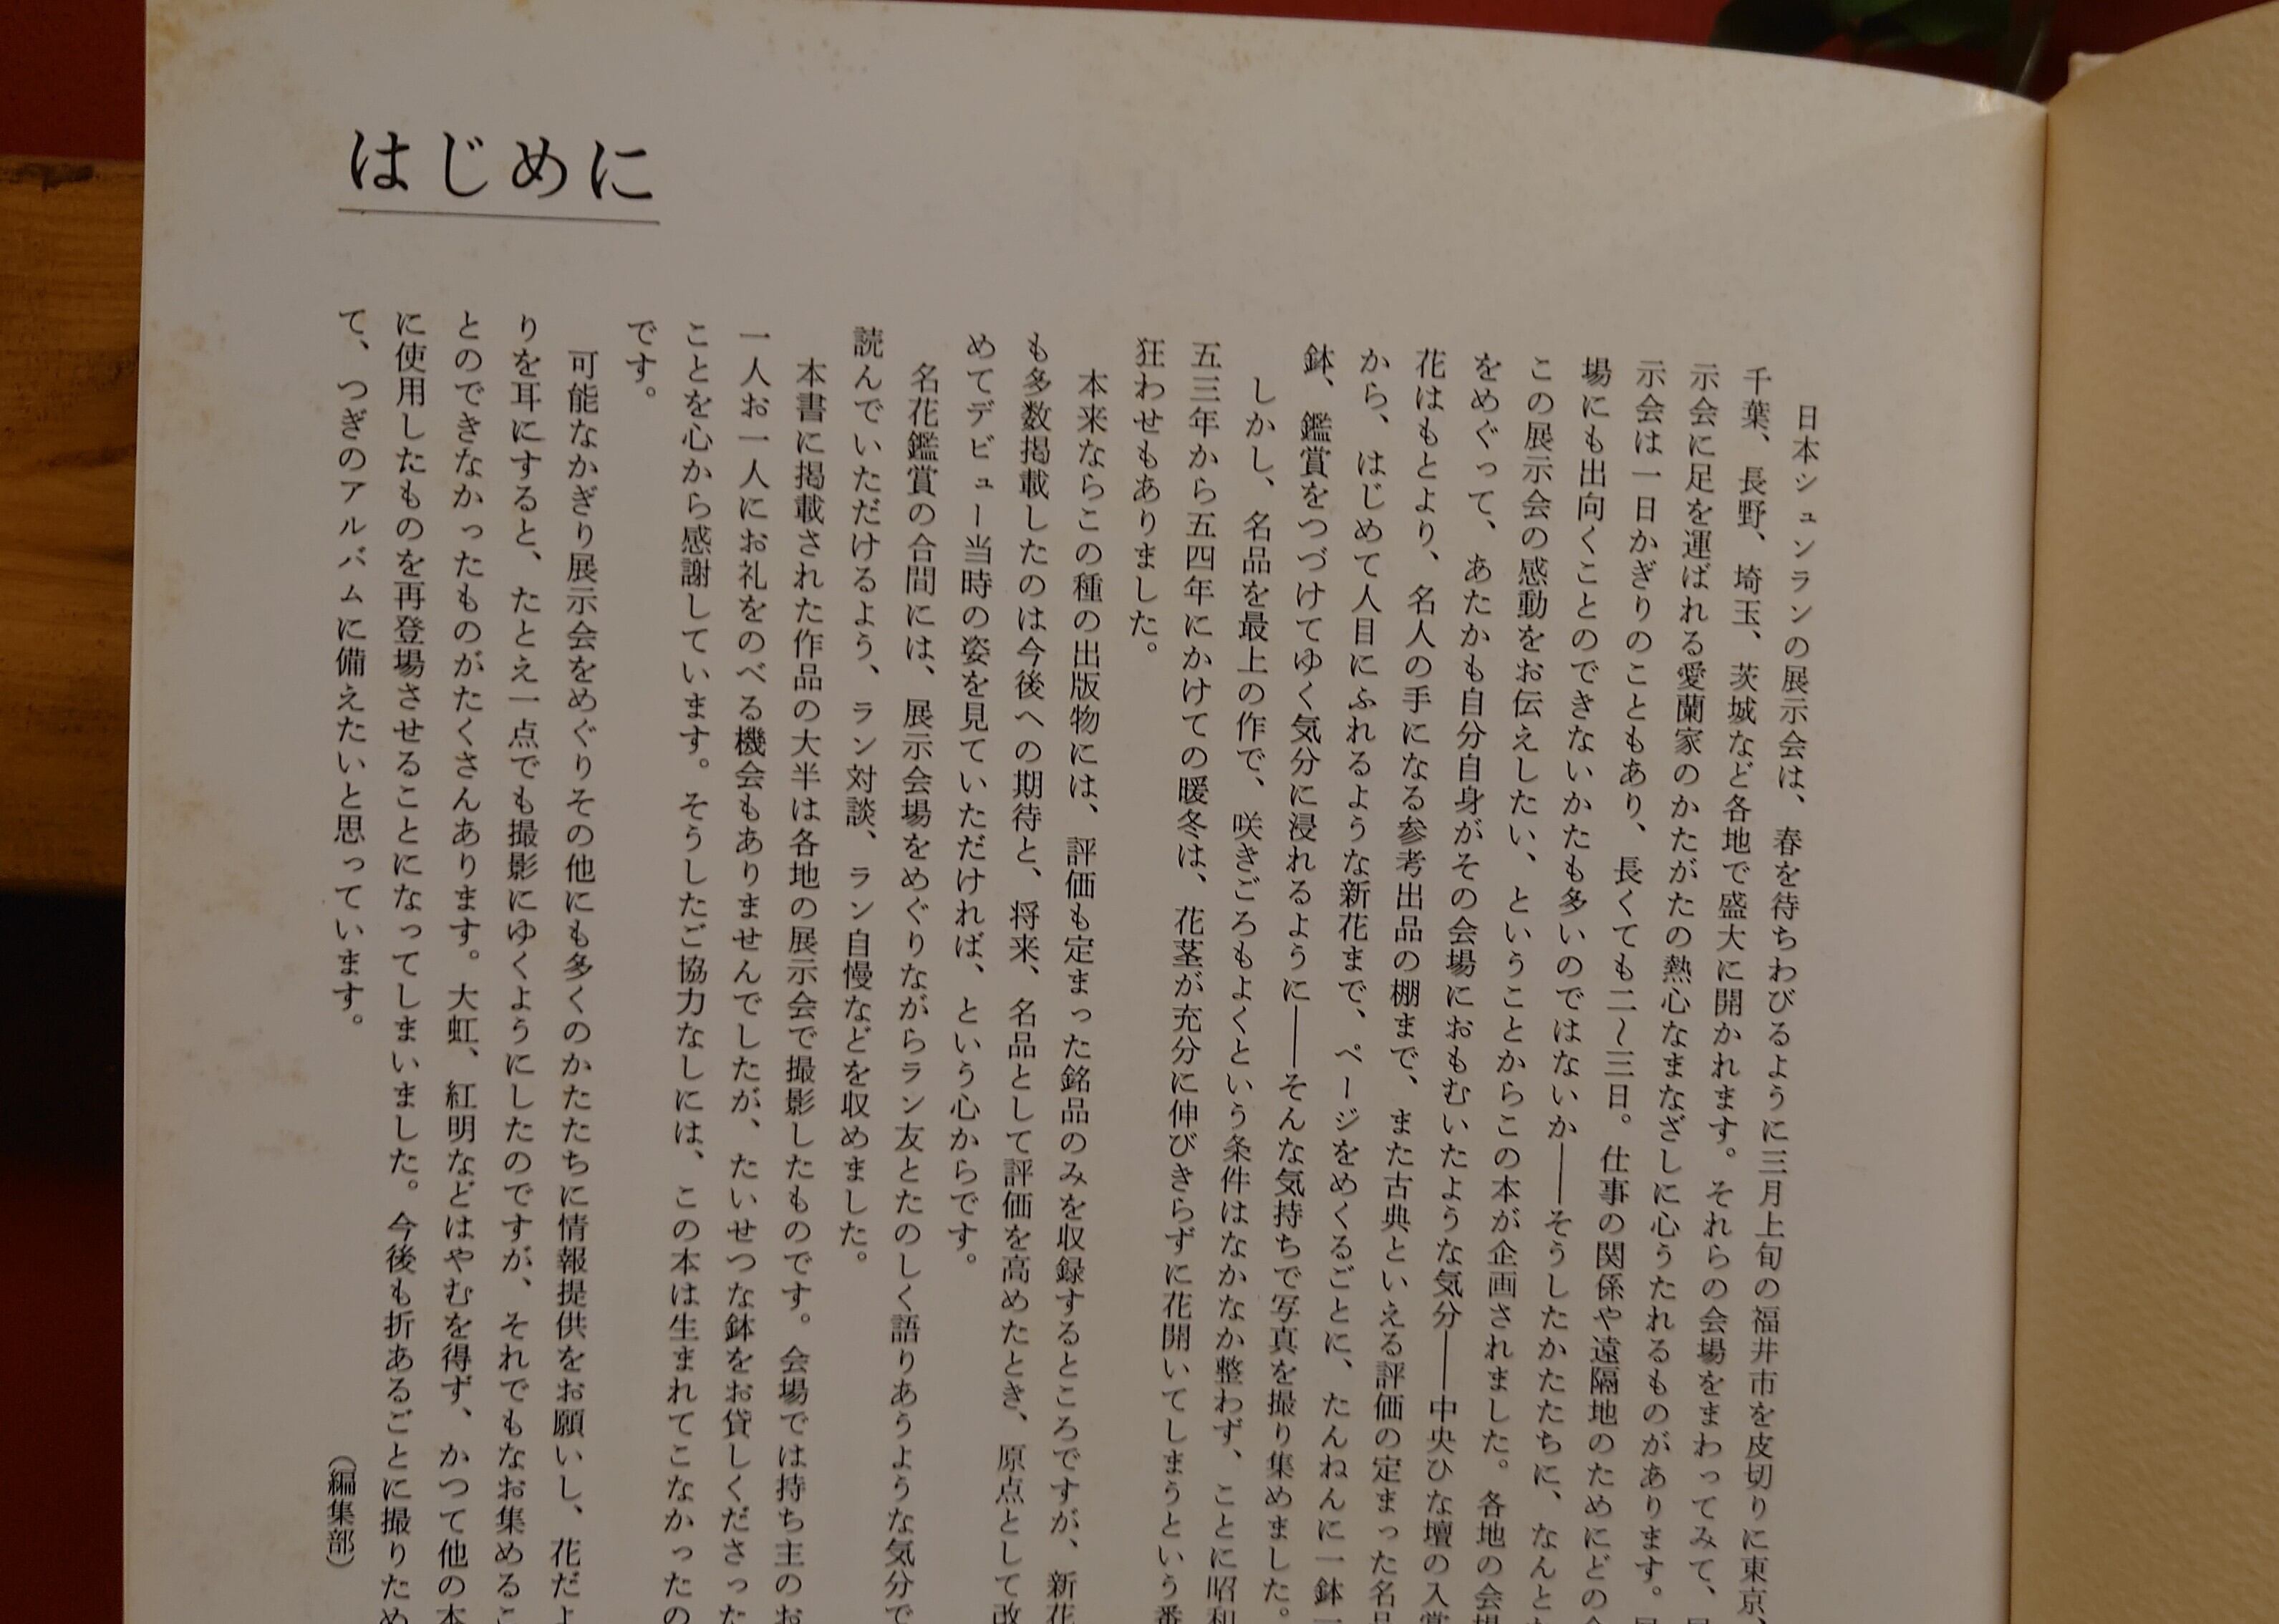 はじめに
日本シュンランの展示会は、春を待ちわびるように三月上旬の福井市を皮切りに東京、
千葉、長野、埼玉、茨城など各地で盛大に開かれます。それらの会場をまわってみて、
示会に足を運ばれる愛蘭家のかたがたの熱心なまなざしに心うたれるものがあります。
示会は一日かぎりのこともあり、長くても二〜三日。仕事の関係や遠隔地のためにどの
場にも出向くことのできないかたも多いのではないか――そうしたかたたちに、なんと
この展示会の感動をお伝えしたい、ということからこの本が企画されました。各地の会場
をめぐって、あたかも自分自身がその会場におもむいたような気分――中央ひな壇の入賞
花はもとより、名人の手になる参考出品の棚まで、また古典といえる評価の定まった名品
から、はじめて人目にふれるような新花まで、ページをめくるごとに、たんねんに一鉢一
鉢、鑑賞をつづけてゆく気分に浸れるように――そんな気持ちで写真を撮り集めました。
しかし、名品を最上の作で、咲きごろもよくという条件はなかなか整わず、ことに昭和
五三年から五四年にかけての暖冬は、花茎が充分に伸びきらずに花開いてしまうという番
狂わせもありました。
本来ならこの種の出版物には、評価も定まった銘品のみを収録するところですが、新花
も多数掲載したのは今後への期待と、将来、名品として評価を高めたとき、原点として改
めてデビュー当時の姿を見ていただければ、という心からです。
名花鑑賞の合間には、展示会場をめぐりながらラン友とたのしく語りあうような気分で
読んでいただけるよう、ラン対談、ラン自慢などを収めました。
本書に掲載された作品の大半は各地の展示会で撮影したものです。会場では持ち主のお
一人お一人にお礼をのべる機会もありませんでしたが、たいせつな鉢をお貸しくださった
ことを心から感謝しています。そうしたご協力なしには、この本は生まれてこなかったの
です。
可能なかぎり展示会をめぐりその他にも多くのかたたちに情報提供をお願いし、花だよ
りを耳にすると、たとえ一点でも撮影にゆくようにしたのですが、それでもなお集めるこ
とのできなかったものがたくさんあります。大虹、紅明などはやむを得ず、かつて他の本
に使用したものを再登場させることになってしまいました。今後も折あるごとに撮りため
て、つぎのアルバムに備えたいと思っています。
（編集部）